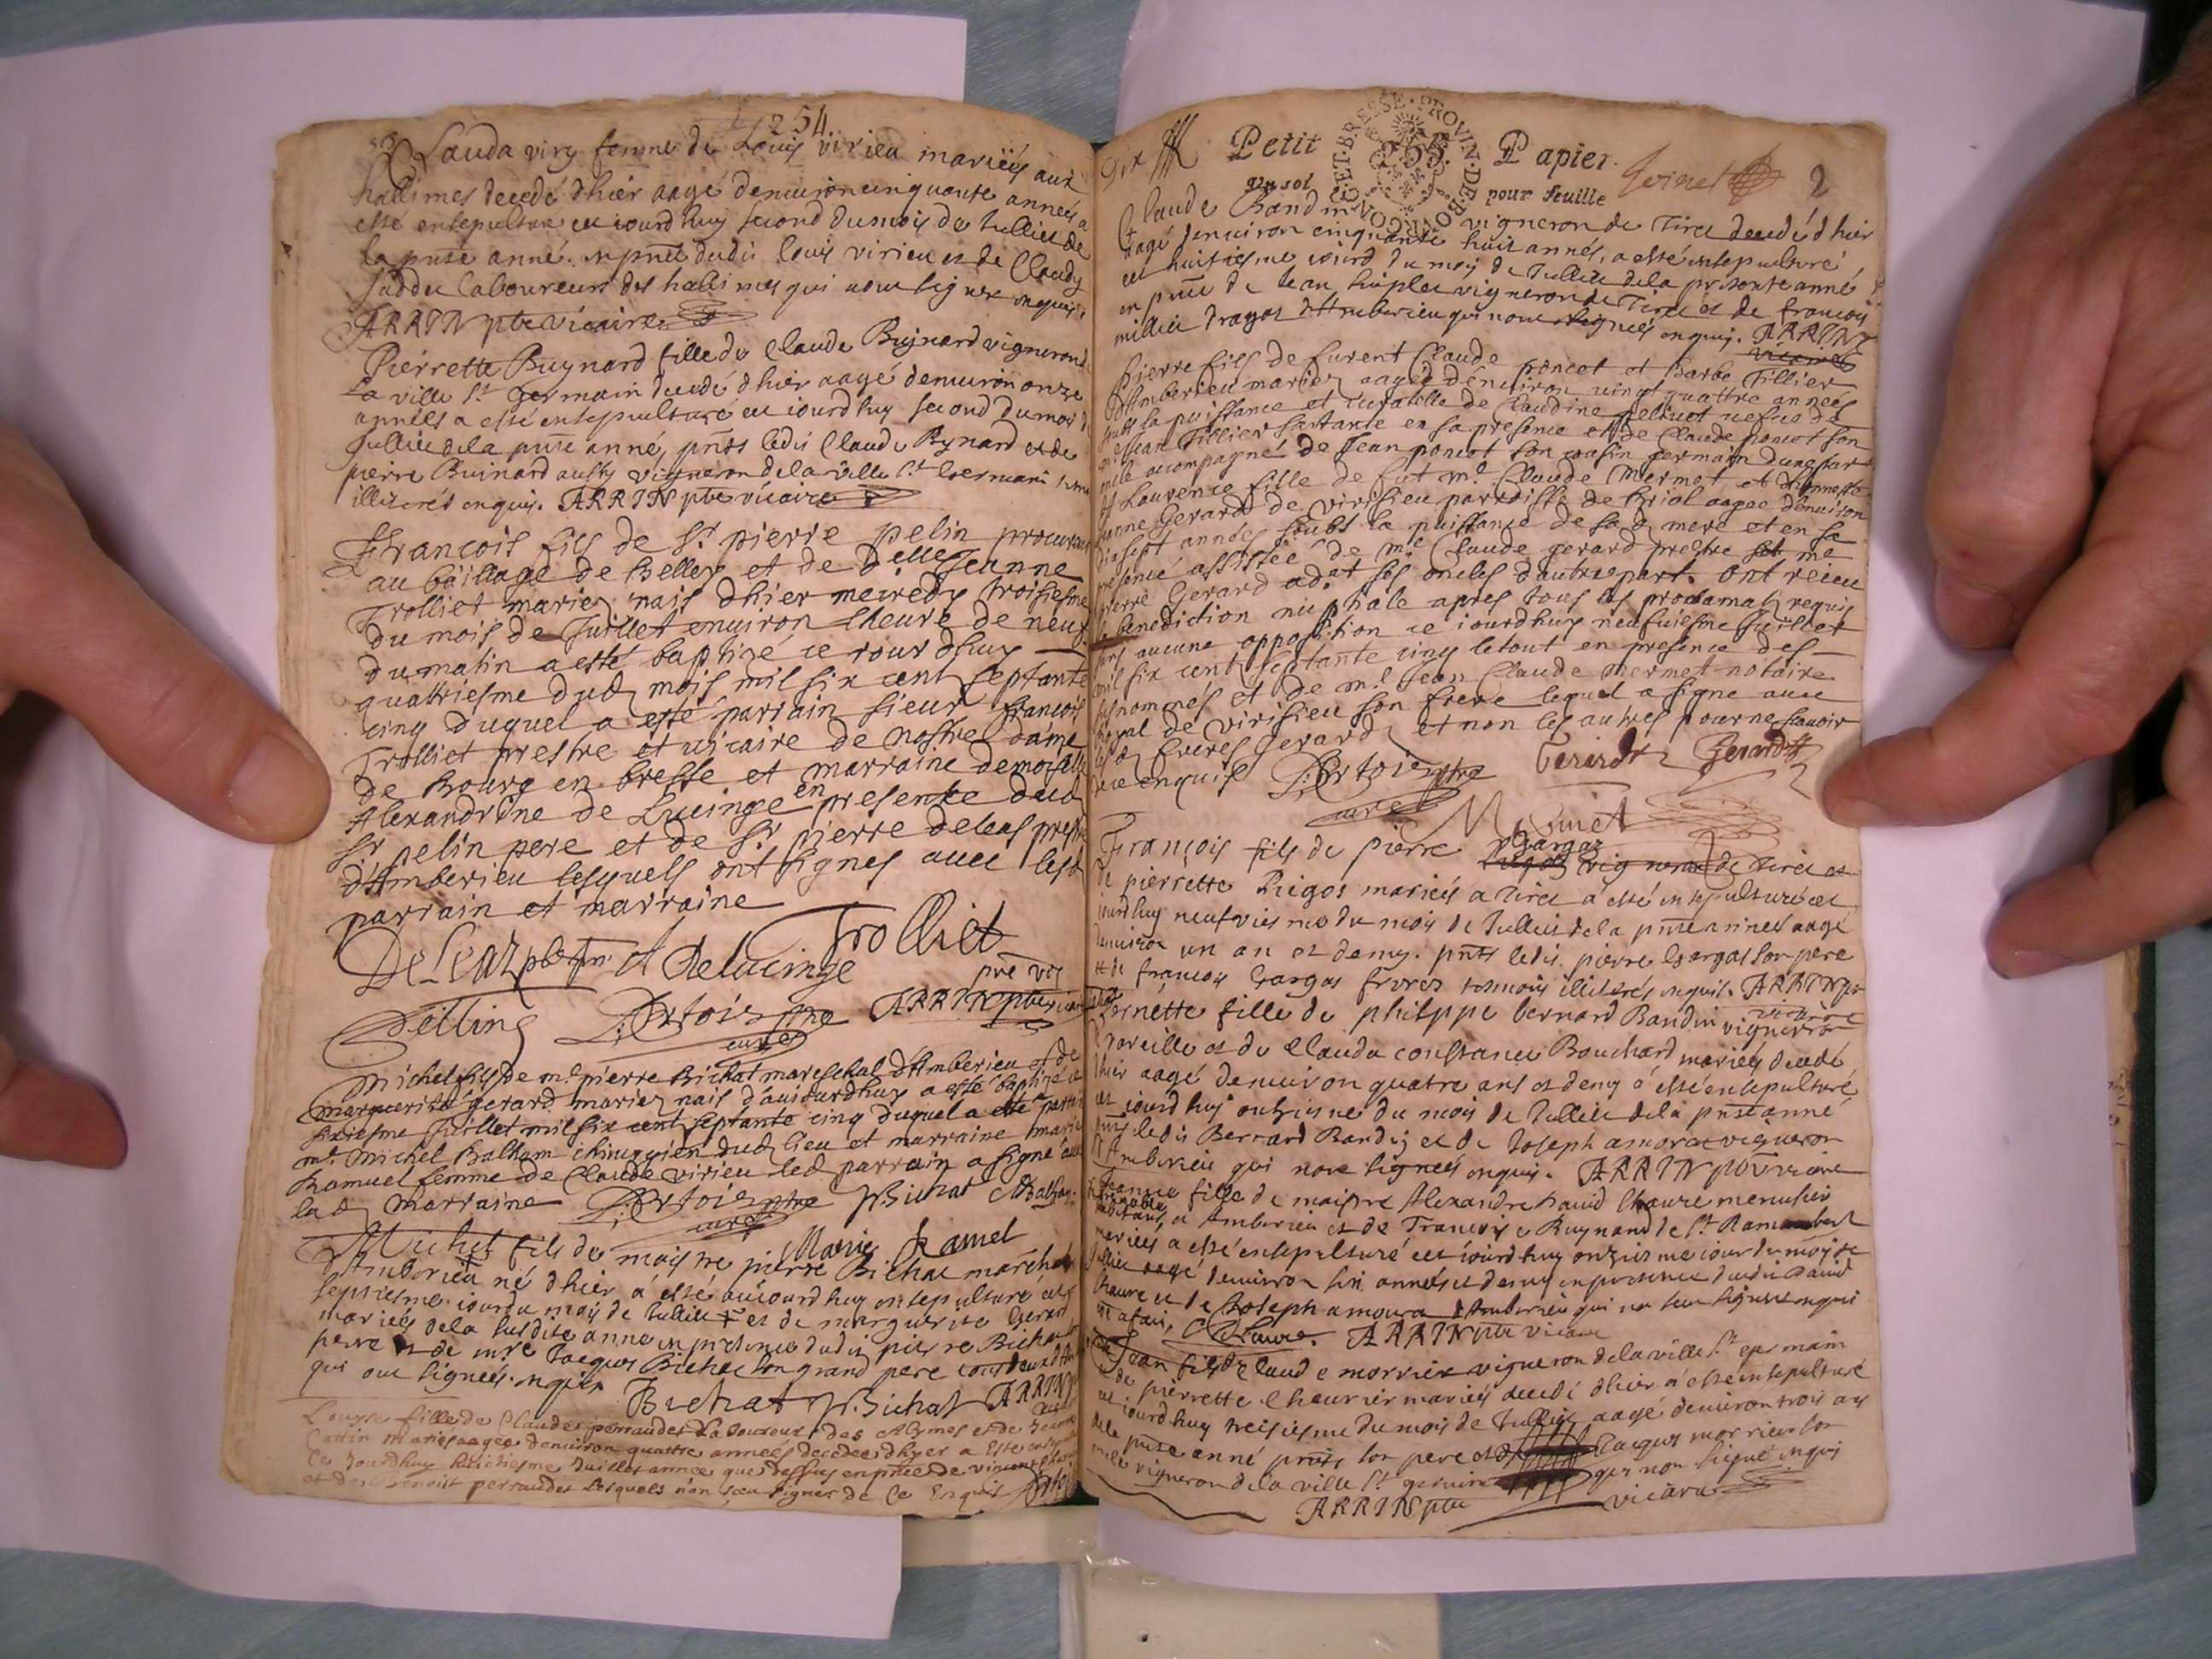 254
Clauda viry femme de Louis virieu mariés aux
hallimes decedé dhier aagé denuiron cinquante années a
esté ensepulture ce iourdhuy second du mois de Iulliet de
la pnte anné. en pnce dudit louis virieu et de Claude
laboureurs des hallimes qui nont signer enquis.
ARRIN pbre vicaire
Pierrette Buynard fille de Claude Buynard vigneron de
La ville St Germain decedé dhier aagé denuiron onze
années a esté ensepulturé ce iourdhuy second du mois de
Iulliet de la pnte anné, pnts ledit Claude Bynard et de
pierre Buinard aussy vigneron de la ville St Germain
illiterés enquis. ARRIN pbre vicaire
François fils de Sr pierre pelin procureur
au bailliage de Belley et de Delle Jeanne
Trolliet mariez nais dhier mercredy troisiesme
du mois de Juillet enuiron lheure de neuf
du matin a esté baptizé ce iourdhuy
quattriesme dud mois mil six cent septante
cinq duquel a esté parrain sieur françois
Trolliet prestre et vicaire de nostre dame
de Bourg en bresse et marraine demoiselle
Alexandrine de Lucinge en presence dud
Sr pelin pere et de Sr pierre deleaz prestre
d'Amberieu lesquels ont signes auec lesd
parrain et marraine
DeLeaz pbre A Delucinge Trolliet
pre vic
Pelling D:Ertois ptre ARRIN pbre vicaire
curé
Michel fils de me pierre Bichat mareschal d'Amberieu et de
marguerite gerard mariez nais d'auiourdhuy a esté baptizé ce
sixiesme Juillet mil six cent septante cinq duquel a esté parrain
me Michel Balham chirurgien dud lieu et marraine marie
Ramuel femme de Claude virieu led parrain a signé auec
lad marraine D:Ertois ptre P. Bichat MBalham
curé
Marie Ramel
Michel fils de maistre pierre Bichat marchal
d'Amberieu né dhier a esté auiourdhuy ensepulturé cet
septiesme iour du mois de Iulliet et de marguerite Gerard
mariés de la susdite anné en presence dudit pierre Bichat
pere et de mre Jacques Bichat son grand pere
qui ont signés enquis Bichat P. Bichat ARRIN
Louyse fille de Claude perraudet Laboureur des Alymes et de
Cattin Maries aagée denuiron quattre années decedee dhyer a este
Ce Jourdhuy huictiesme Juillet année que dessus en pnce de vincent
et de Benoist perraudet Lesquels n'on sceu signer de Ce Enquis
Dix Petit 255. Papier. 2
GEN. ET. BRESSE. PROVIN. DE. BOVRGON
un sol pour feuille
Claude Bandin vigneron de Tirel decedé dhier
aagé denuiron cinquante huit années, a esté ensepulturé
cet huitiesme iourd du moy de Iulliet de la presente anné
en pnce de Jean vigneron de Tirel et de françois
millier dragos d'Amberieu qui nont signés enquis. ARRIN
vicaire
Pierre fils de furent Claude poncet et Barbe Tillier
d'Amberieu mariez aagée d'enuiron vingt quattre années
soubs la puissance et curatelle de Claudine pelissot vefue de
Tillier sa tante en sa presence et de Claude poncet son
oncle accompagné de Jean poncet son cousin germain d'une part
et Laurence fille de fut me Claude Mermet et d'honneste
Jeanne Gerard de virisieu parroisse de briol aagee d'enuiron
dixsept années soubs la puissance de sad mere et en sa
presence assistée de me Claude gerard prestre et me
pierre Gerard ad.at ses oncles d'autre part. Ont receu
la benediction nuptiale apres tous les proclamatz requis
sans aucune opposition ce iourdhuy neufuiesme Juillet
mil six cent septante cinq le tout en presence des
susnommés et de me Jean Claude Mermet notaire
royal de virisieu son frere lequel a signe auec
lesd freres Gerard et non les autres pour ne scauoir
de ce enquis D:Ertois ptre Gerard Gerard
curé Mermet
François fils de Pierre Gargos vigneron de Tirel et
de pierrette Rigos mariés a Tirel a esté ensepulturé cet
iourdhuy neufviesme du mois de Iulliet de la pnte année aagé
denuiron un an et demy. pnts ledit pierre Gargos son pere
et de françois Gargos freres temoins illiterés enquis. ARRIN pbre
vicaire
Bernette fille de philippe bernard Bandin vigneron
a Vareille et de Clauda constance Bouchard mariés decedé
dhier aagé denuiron quatre ans et demy a esté ensepulturé
cet iourdhuy onziesme du mois de Iulliet de la pnte anné
pnts ledit Bernard Bandin et de Joseph amorat vigneron
d'Amberieu qui nont signés enquis. ARRIN pbre vicaire
Jeanne fille de maistre Alexandre David Chaure menusier
habitans, a Amberieu et de Françoise Buynand de St Rambert
mariés a esté ensepulturé cet iourdhuy onziesme iour du moy de
Iulliet aagé denuiron six années et demy en presence dudit David
Chaure et de Joseph amoura d'Amberieu qui na sceu signer enquis
ARRIN pbre vicaire
Jean fils de Claude morrier vigneron de la ville St germain
et de pierrette Cheurier mariés decedé dhier a esté ensepulturé
cet iourdhuy treisiesme du mois de Iulliet aagé denuiron trois ans
de la pnte anné pnts son pere et Jacques morrier son
oncle vigneron de la ville St germain qui non signé enquis
ARRIN pbre vicaire